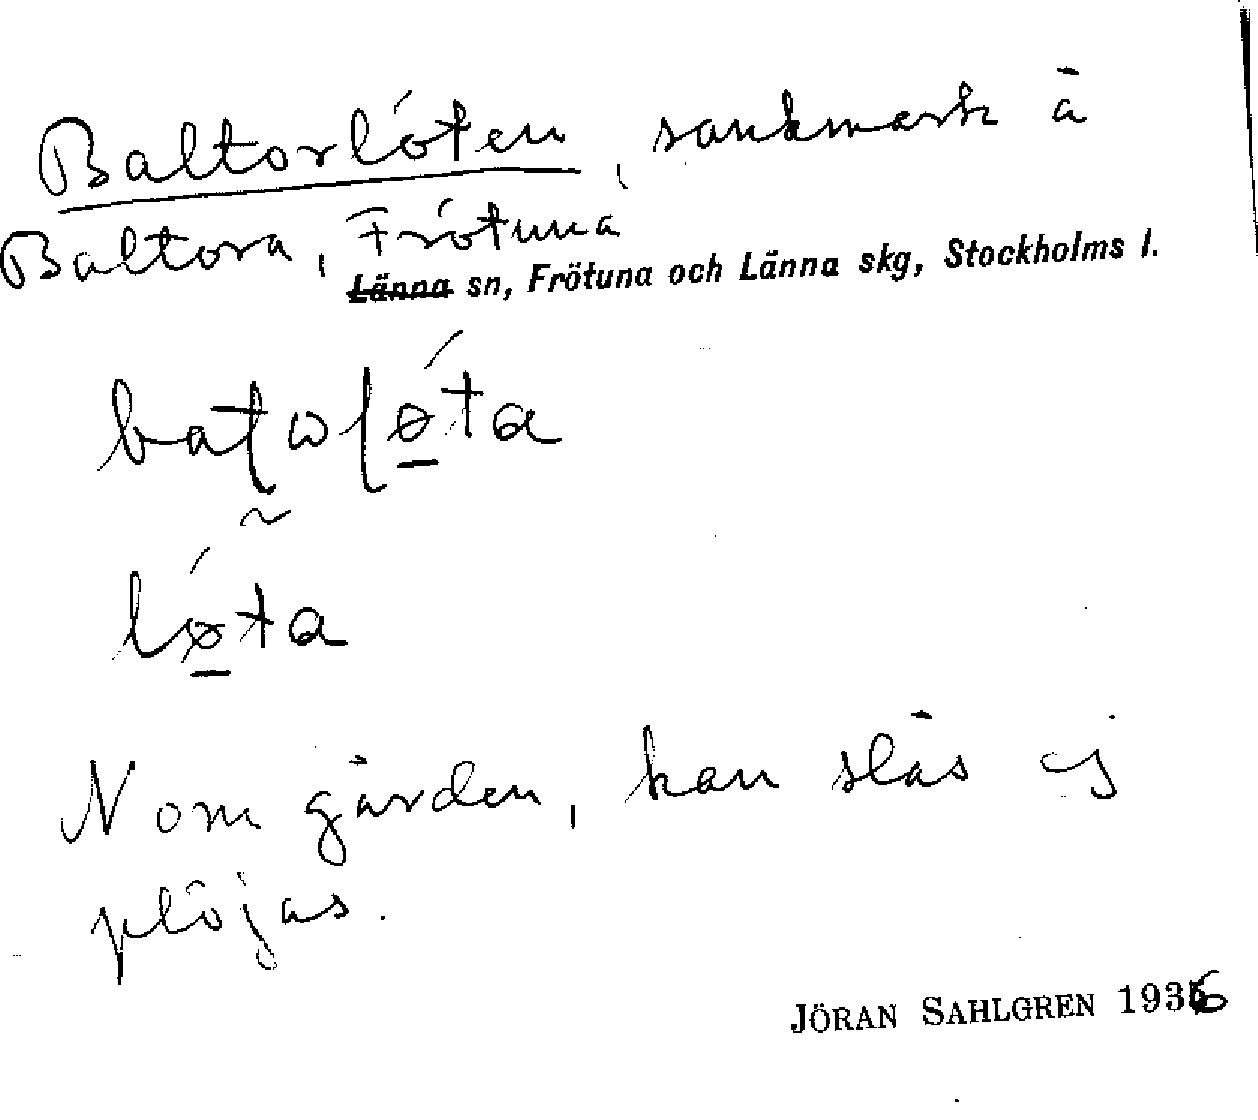 Baltorlöten, sankmark å
Baltora, Frötuna
Länna sn, Frötuna och Länna skg, Stockholms l.
baʈωɭǿ̲ta
~
lǿ̲ta
N om gården, kan slås ej
plöjas.
JÖRAN SAHLGREN 1936